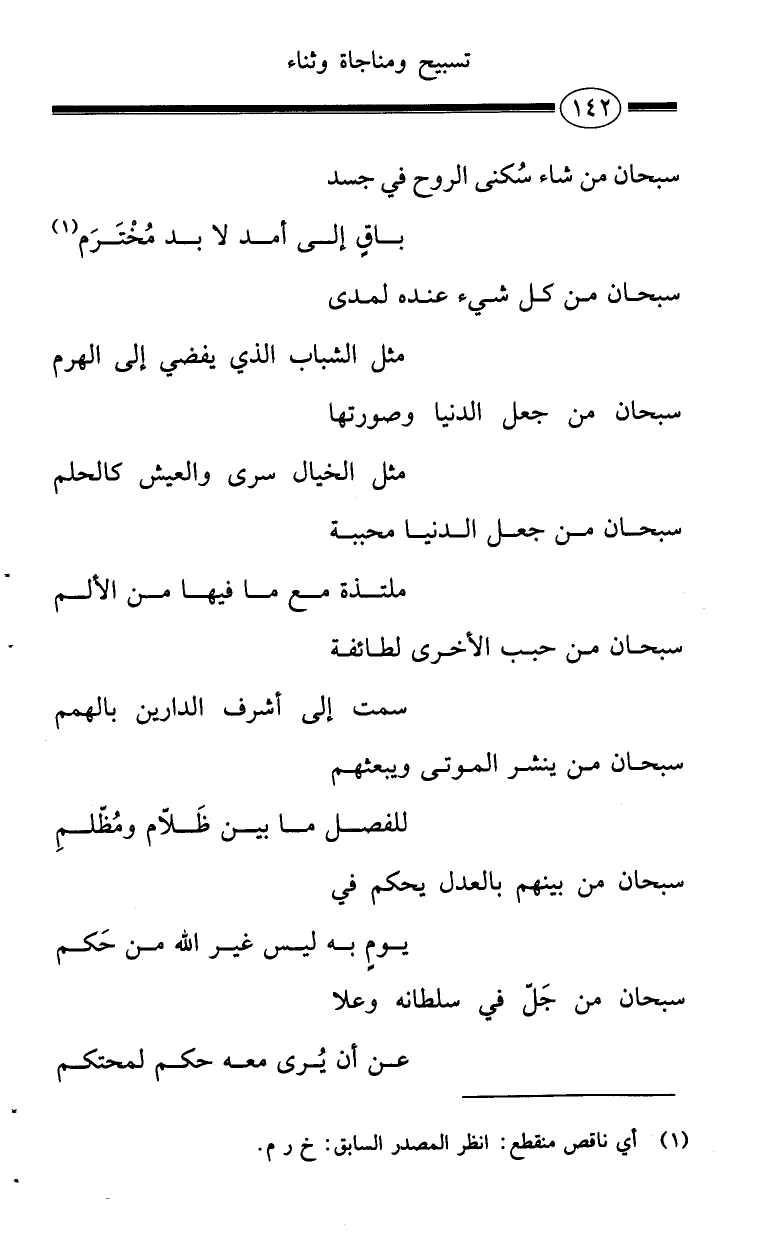 تسبيح ومناجاة وثناء
١٤٢
سبحان من شاء سُكنى الروح في جسد
بـاقٍ إلـى أمـد لا بـد مُخْتَـرَم(١)
سبحـان مـن كـل شـيء عنـده لمـدى
مثل الشباب الذي يفضي إلى الهرم
سبحان من جعل الدنيا وصورتها
مثل الخيال سرى والعيش كالحلم
سبحـان مـن جعـل الـدنيـا محببـة
ملتـذة مـع مـا فيهـا مـن الألـم
سبحـان مـن حبـب الأخـرى لطـائفـة
سمت إلى أشرف الدارين بالهمم
سبحـان مـن ينشـر المـوتـى ويبعثهـم
للفصـل مـا بيـن ظَـلاّم ومُظّلـمِ
سبحان من بينهم بالعدل يحكم في
يـومٍ بـه ليـس غيـر الله مـن حَكـم
سبحان من جَلّ في سلطانه وعلا
عـن أن يُـرى معـه حكـم لمحتكـم
(١) أي ناقص منقطع: انظر المصدر السابق: خ ر م.